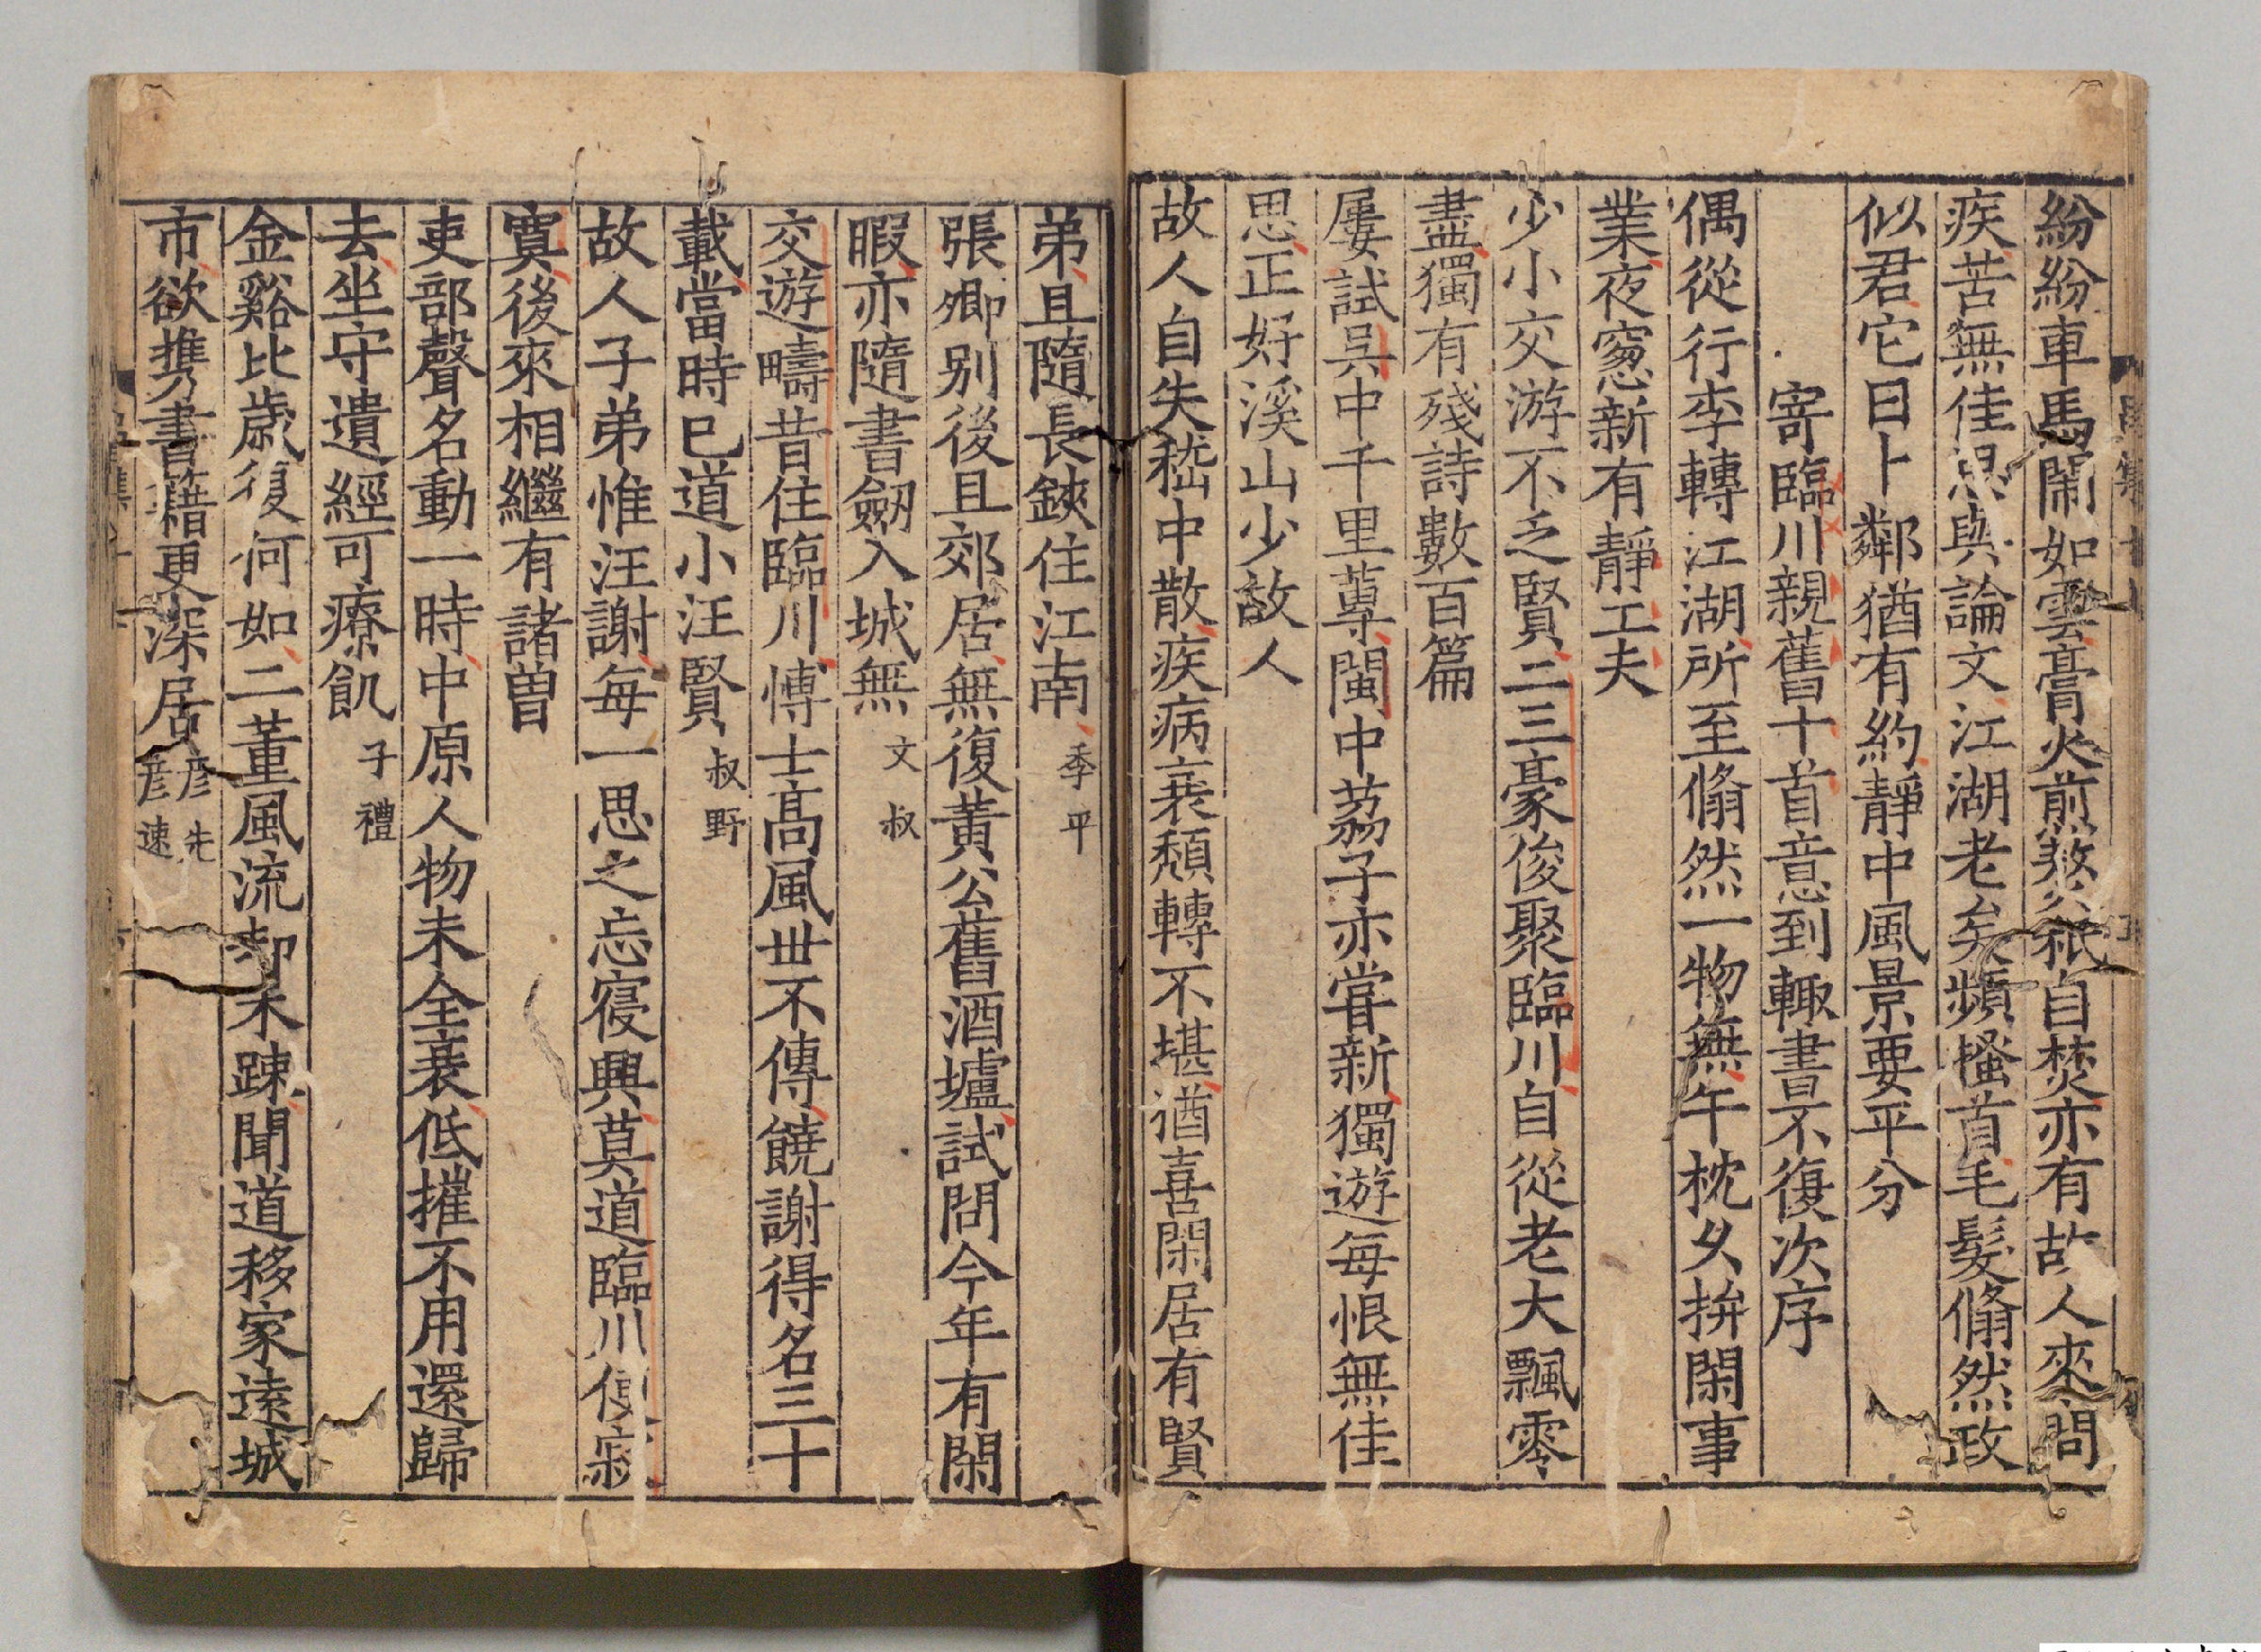 紛紛車馬鬧如雲膏火煎熬秖自焚亦有故人來問
疾苦無佳思與論文江湖老矣頻搔首毛髮翛然政
似君它日卜鄰猶有約靜中風景要平分
寄臨川親舊十首意到輙書不復次序
偶從行李轉江湖所至翛然一物無午枕夂拚閑事
業夜窻新有靜工夫
少小交游不乏賢二三豪俊聚臨川自從老大飄零
盡獨有殘詩數百篇
屢試吳中千里蓴閩中茘子亦甞新獨遊每恨無佳
思正好溪山少故人
故人自失嵇中散疾病衰頽轉不堪猶喜閑居有賢
弟且隨長鋏住江南季平
張卿別後且郊居無復黃公舊酒壚試問今年有閑
暇亦隨書劒入城無文叔
交遊疇昔住臨川博士高風世不傳饒謝得名三十
載當時已道小汪賢叔野
故人子弟惟汪謝每一思之忘寑興莫道臨川便寂
寞後來相繼有諸曽
吏部聲名動一時中原人物未全衰低摧不用還歸
去坐守遺經可療飢子禮
金谿比歲復何如二董風流却未踈聞道移家遠城
市欲携書籍更深居彦先彦速